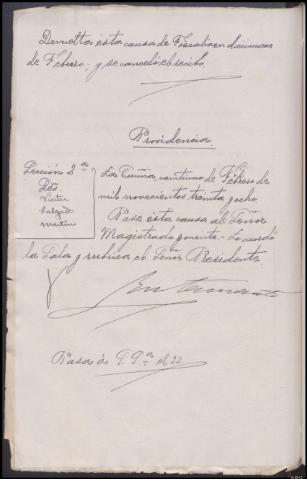 Devuelta esta causa de Fiscalia en diecinueve
de Febrero y se canceló el recibo.
Providencia
Sección 2ª
Sres.
Victor
Salgado
Martin
La Coruña, veintiuno de Febrero de
mil novecientos treinta y ocho
Pase esta causa al Señor
Magistrado ponente. Lo acordó
la Sala y rubrica el Señor Presidente
Pasa à P. Pte el 22